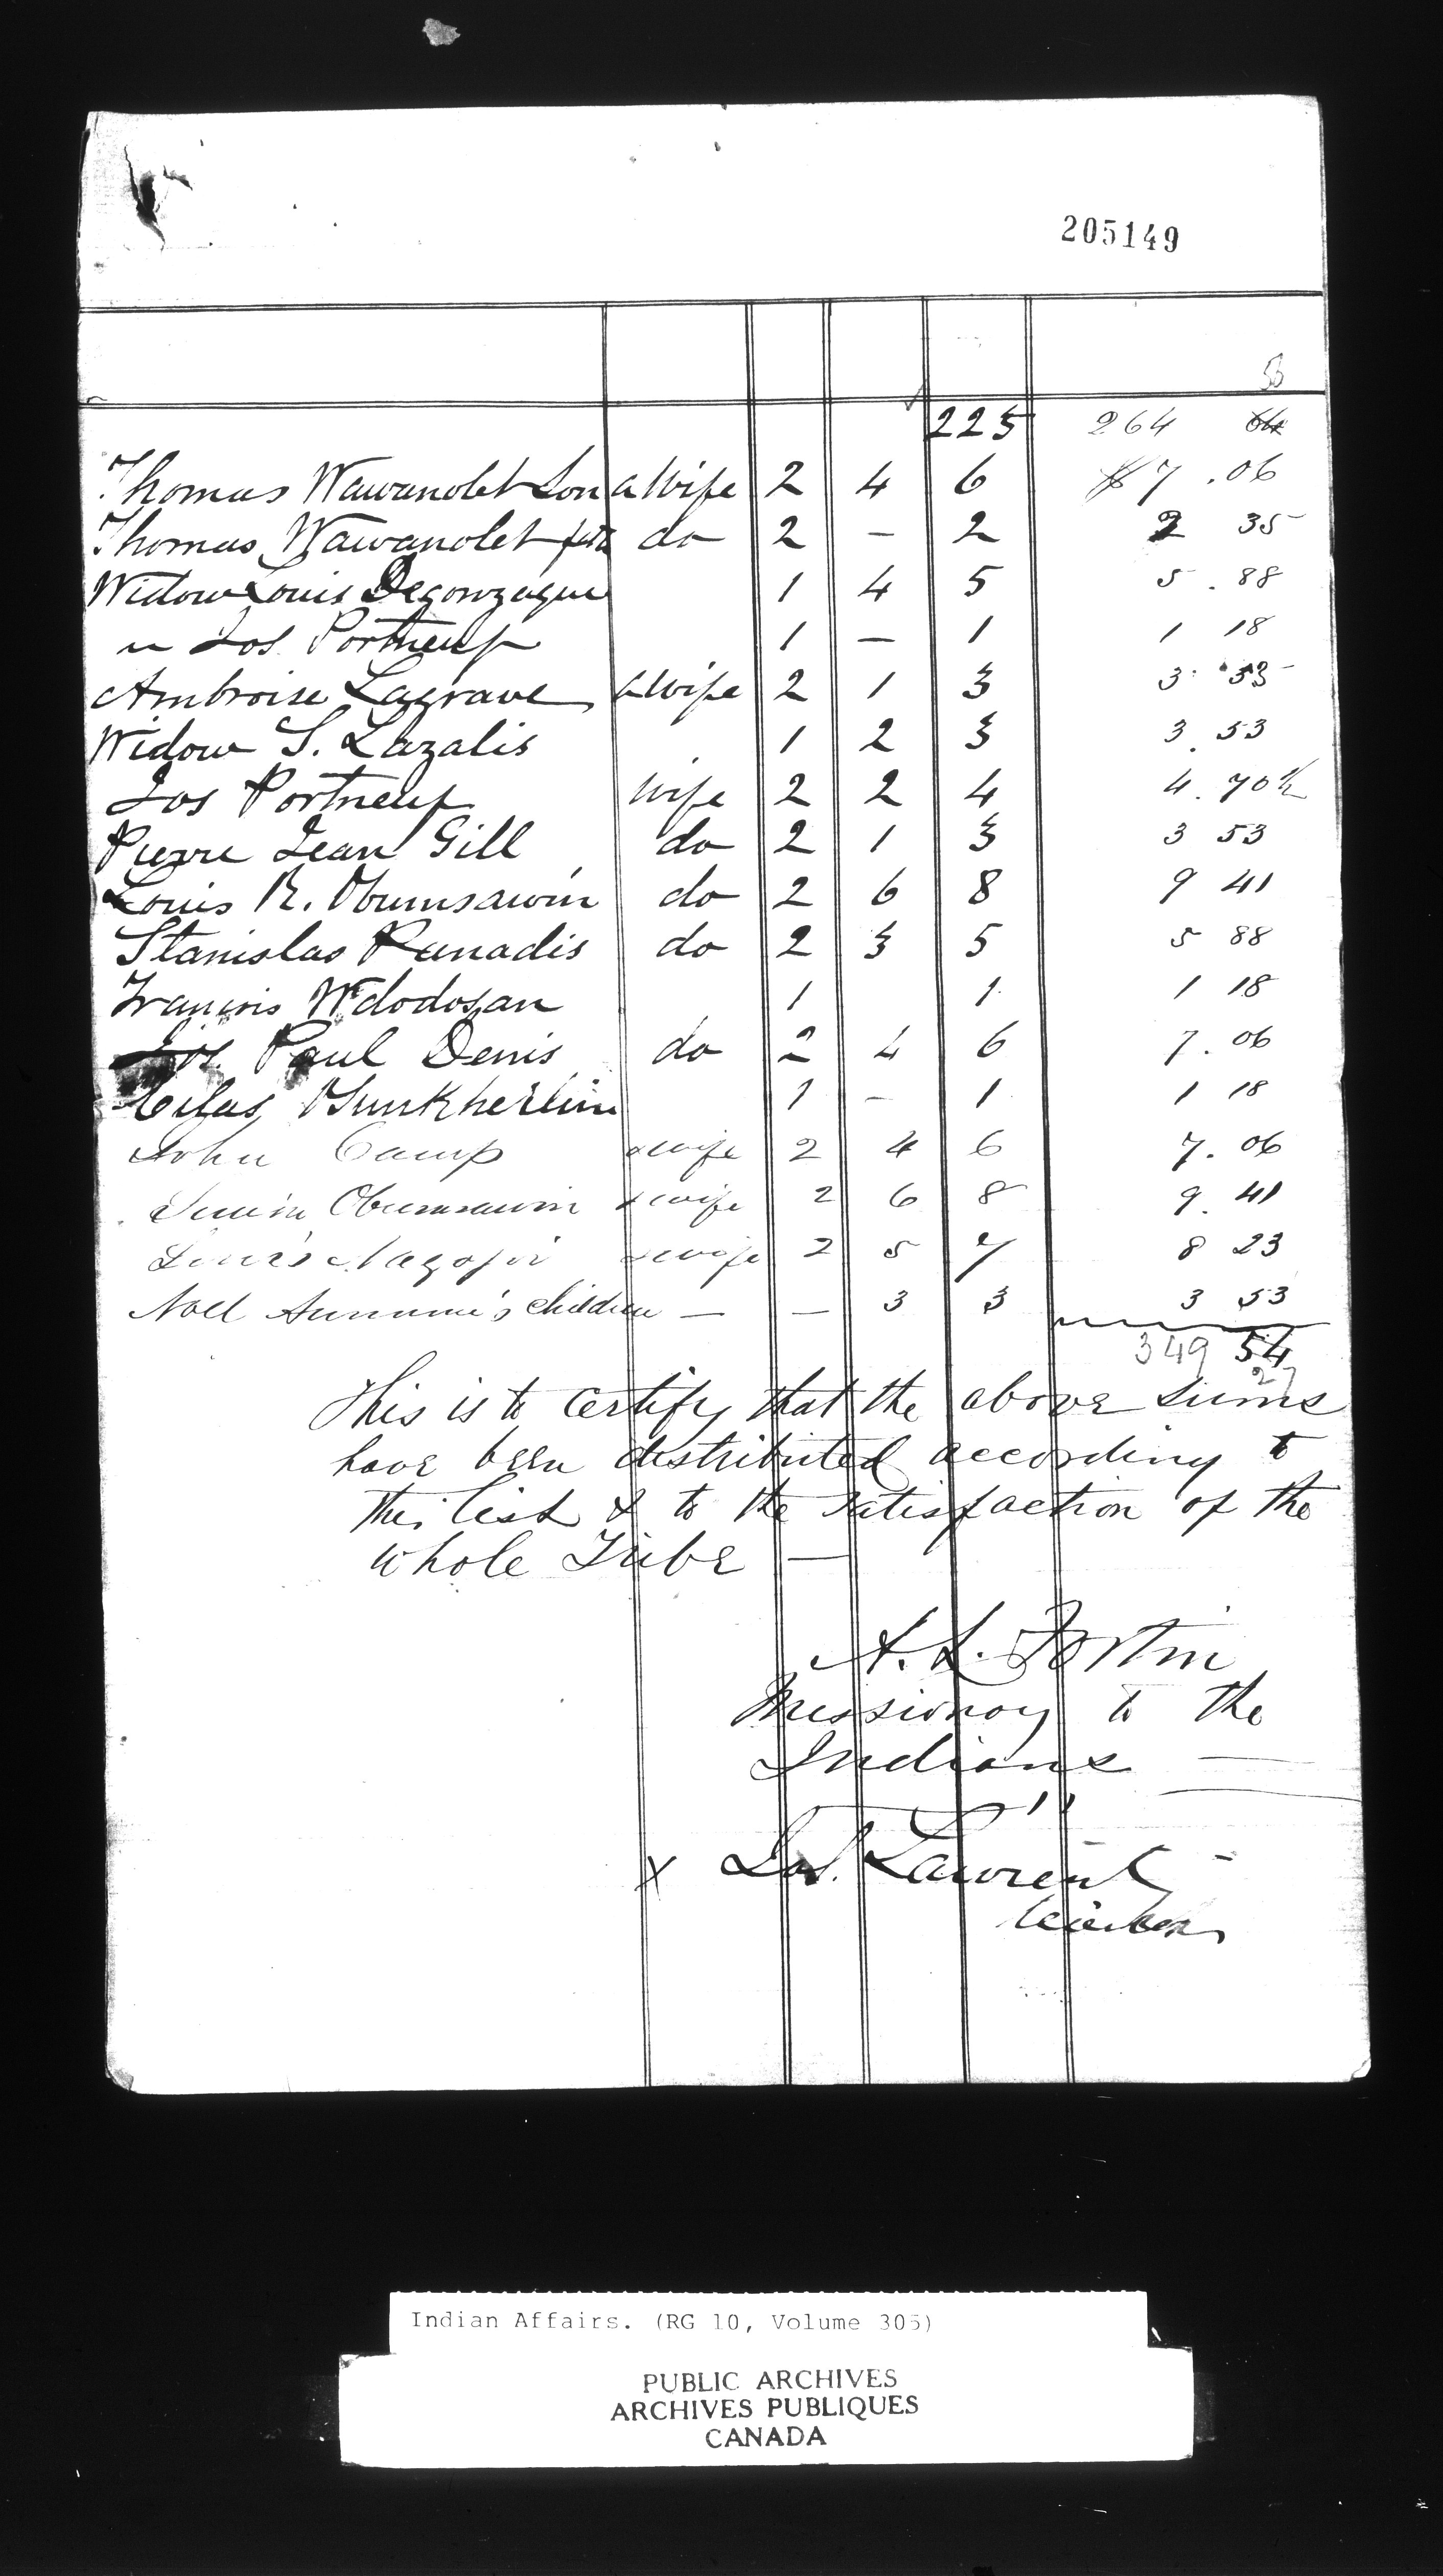 205149
53
225 264 64
Thomas Wawanolet Son & Wife 2 4 6 $7.06
Thomas Wawanolet do 2 – 2 2 35
Widow Louis Degonzague 1 4 5 5.88
" Jos Portneuf 1 – 1 1 18
Ambroise Lagrave & Wife 2 1 3 3.53
Widow S. Lazalis 1 2 3 3.53
Jos Portneuf Wife 2 2 4 4.70½
Pierre Jean Gill do 2 1 3 3 53
Louis R. Obumsawin do 2 6 8 9 41
Stanislas Panadis do 2 3 5 5 88
Francois Wdodosan 1 1 1 18
Jos. Paul Denis do 2 4 6 7.06
1 – 1 1 18
John Camp & wife 2 4 6 7.06
Obumsawin & wife 2 6 8 9.41
Louis & wife 2 5 7 8 23
Noel Annance's children — — 3 3 3 53
349 54
27
This is to certify that the above sums
have been distributed according to
the list & to the satisfaction of the
whole Tribe —
A. L. Fortin
Missionary to the
Indians —
x Jos. Laurent

Indian Affairs. (RG 10, Volume 305)
PUBLIC ARCHIVES
ARCHIVES PUBLIQUES
CANADA